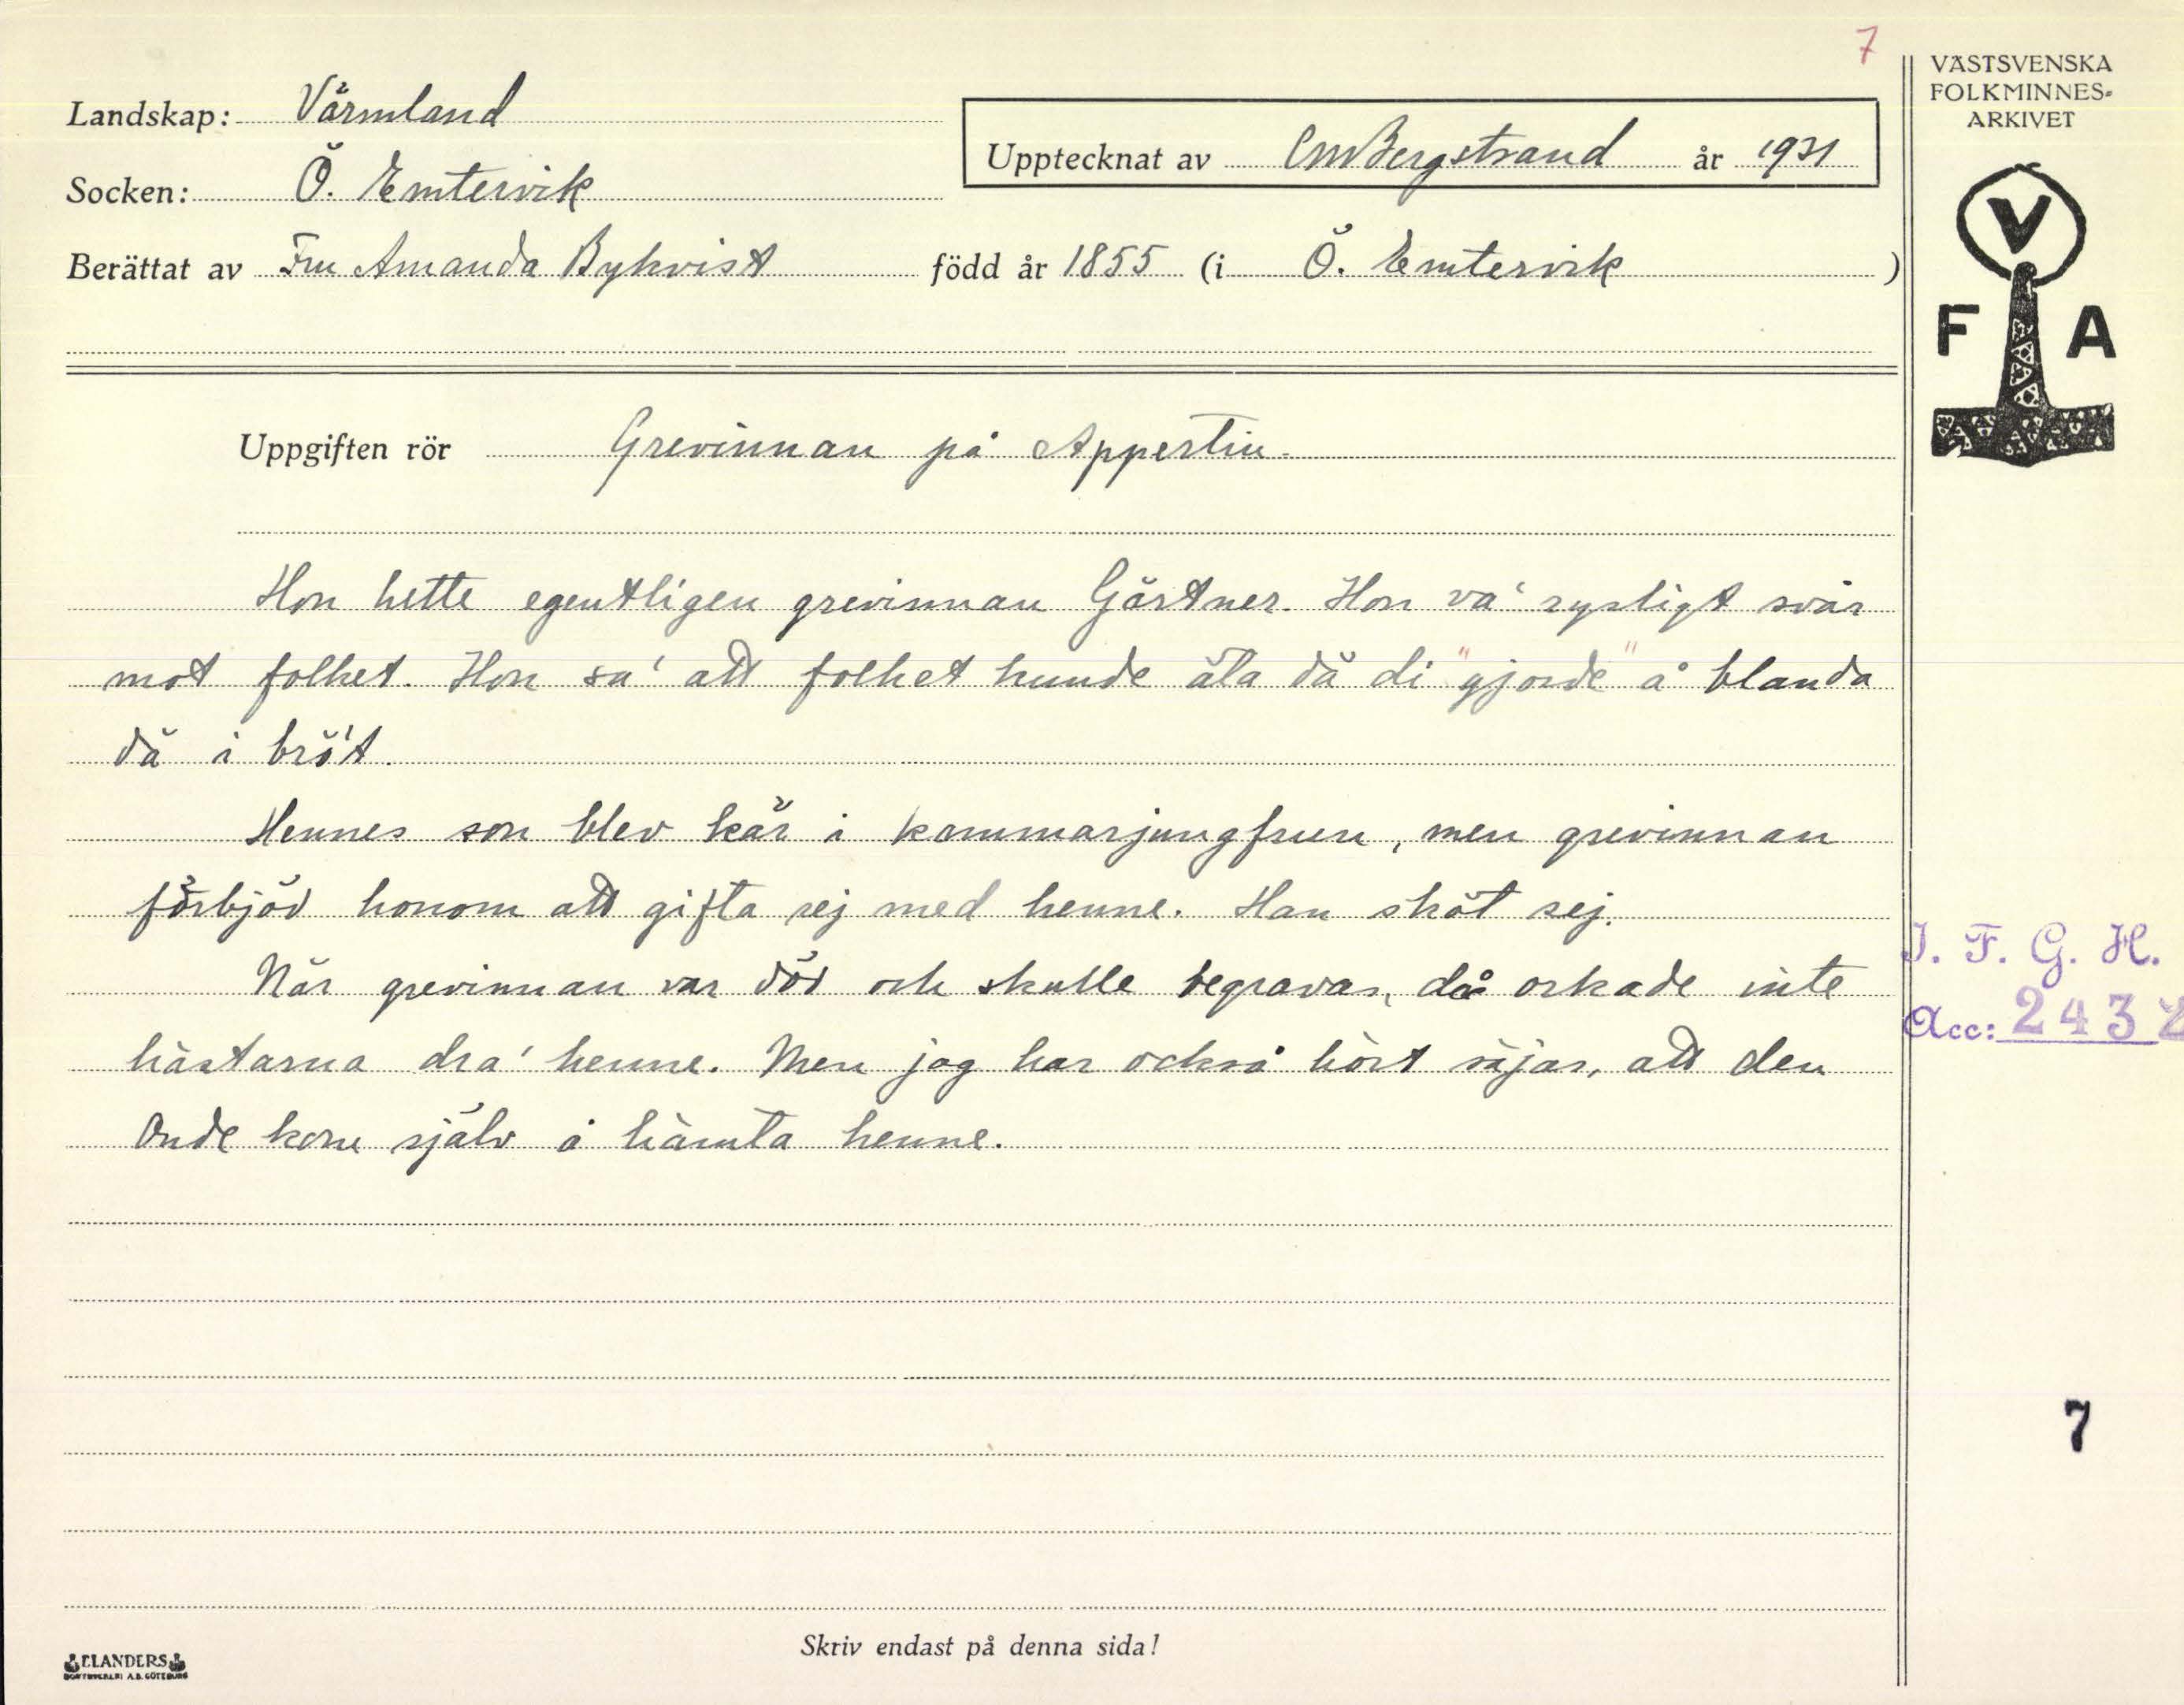 7
VÄSTSVENSKA
FOLKMINNES-
ARKIVET
Landskap: Värmland
Upptecknat av CMBergstrand år 1931
Socken: Ö. Emtervik
Berättat av Fru Amanda Bykvist född år 1855 (i Ö. Emtervik )
V
F A
Uppgiften rör Grevinnan på Appertin.
Hon hette egentligen grevinnan Gärtner. Hon va' rysligt svår
mot folket. Hon sa' att folket kunde äta dä di "gjorde" å blanda
dä i brö't.
Hennes son blev kär i kammarjungfrun, men grevinnan
förbjöd honom att gifta sej med henne. Han sköt sej.
När grevinnan var död och skulle begravas, då orkade inte
hästarna dra' henne. Men jag har också hört säjas, att den
Onde kom själv å hämta henne.
I. F. G. H.
Acc: 2432
7
Skriv endast på denna sida!
ELANDERS
BOKTRYCKERI A.B. GÖTEBORG